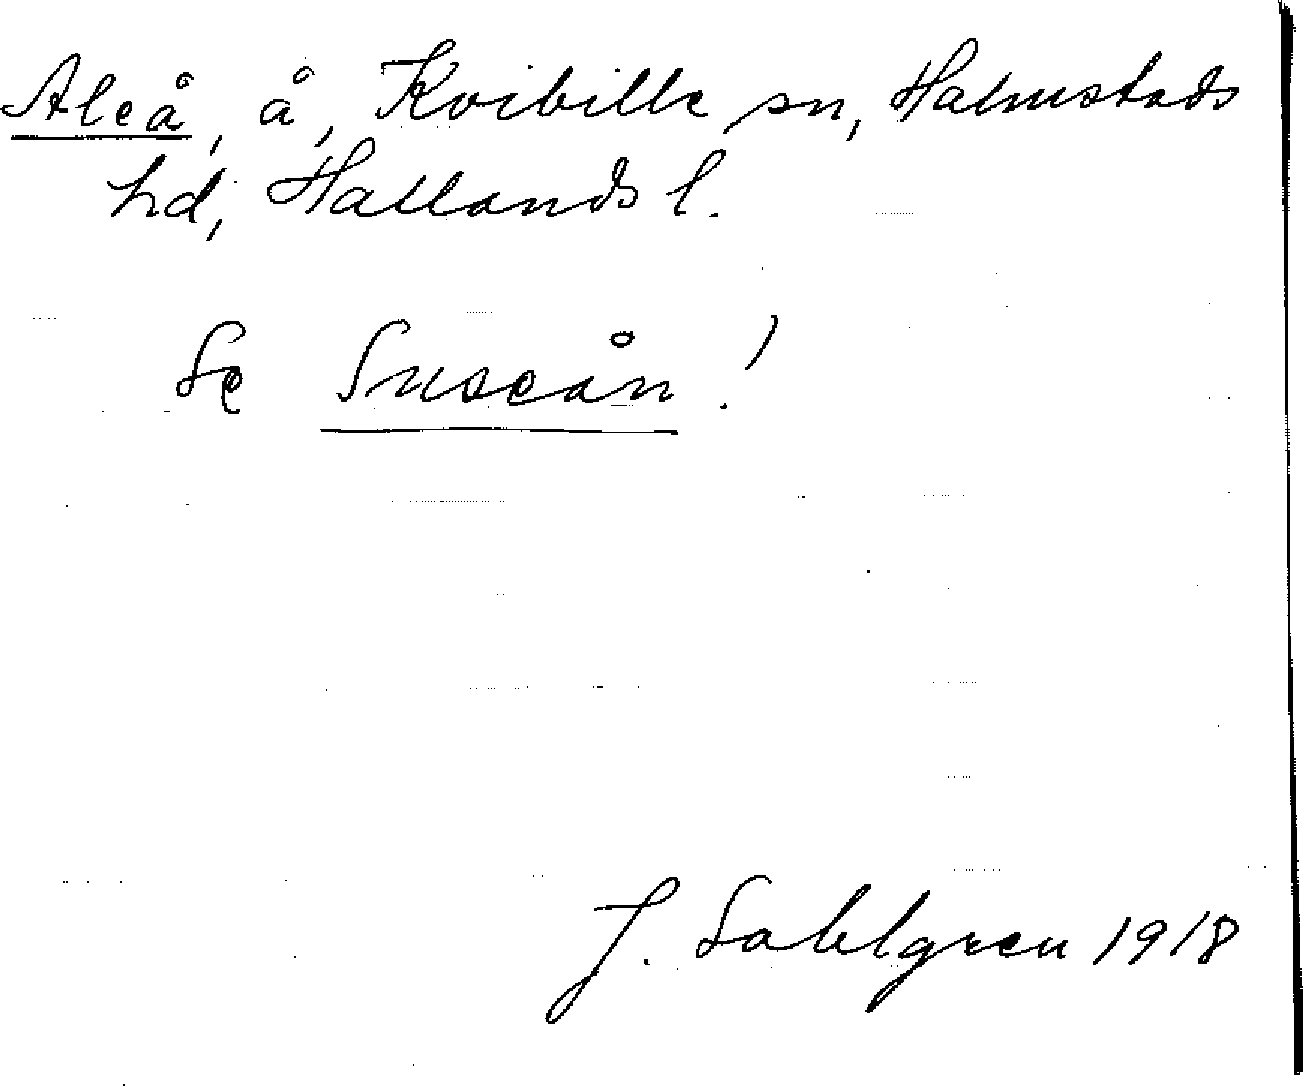 Aleå, å, Kvibille sn, Halmstads
hd, Hallands l.
Se Suseån!
J. Sahlgren 1918